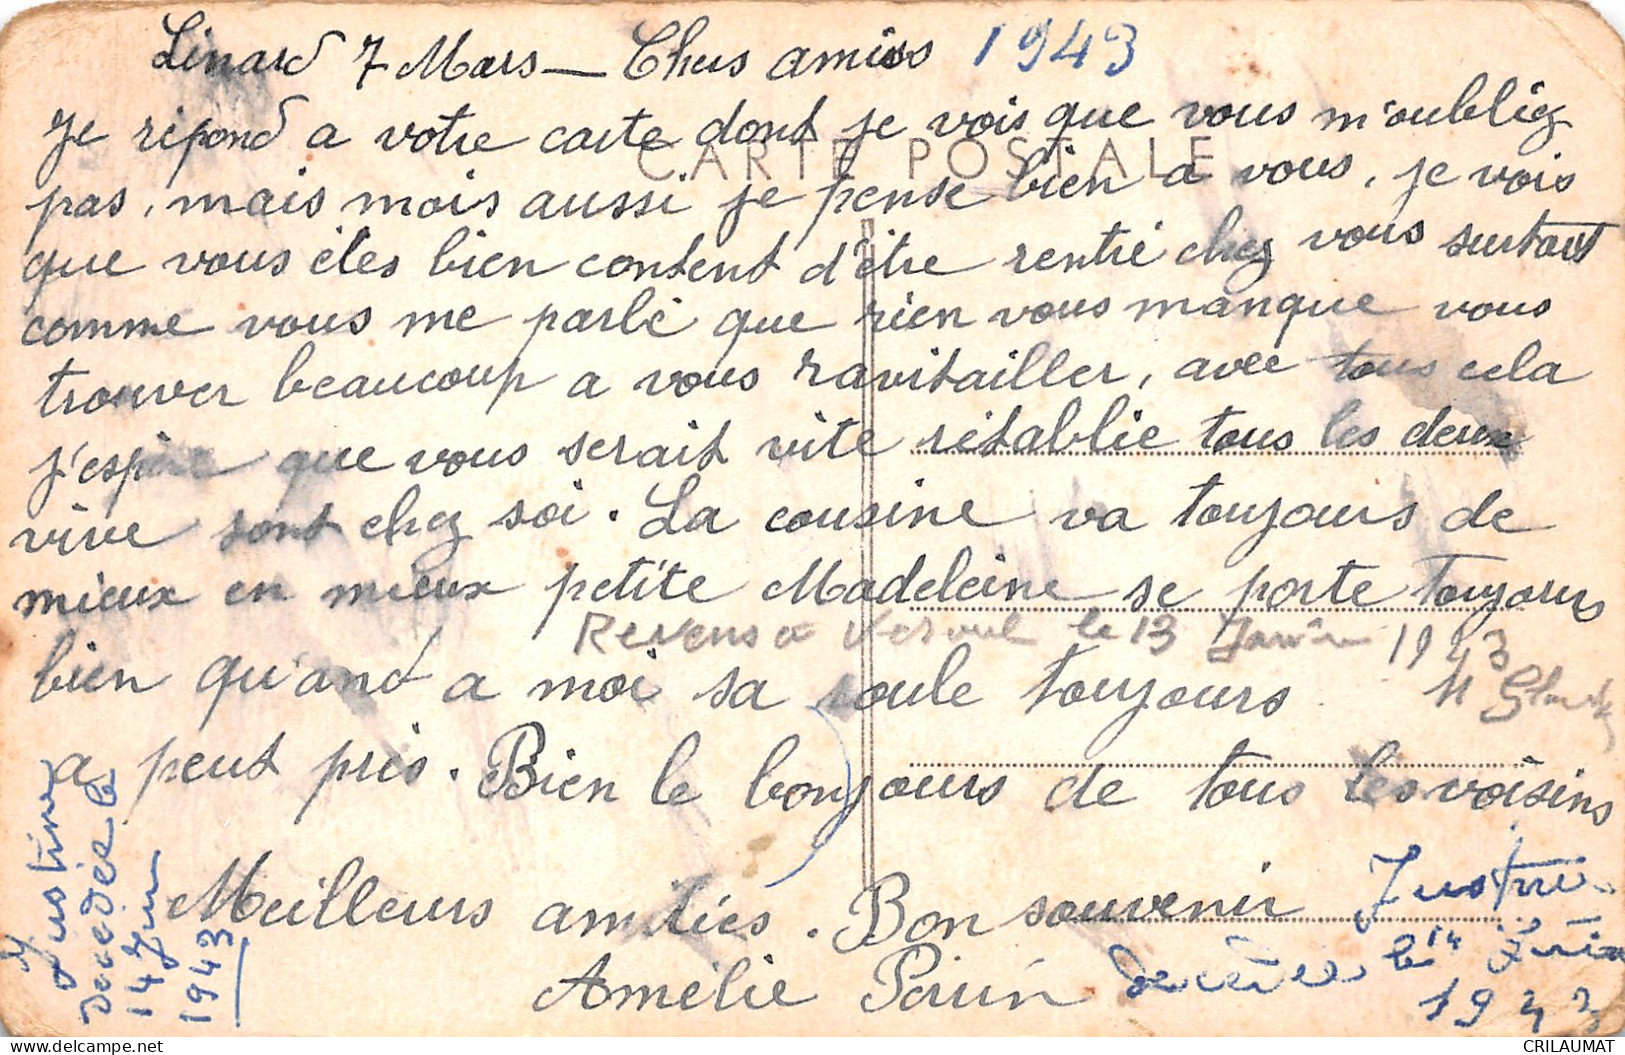 Linard 7 Mars — Chers amis 1943
Je répond a votre carte dont je vois que vous m'oubliez
CARTE POSTALE
pas, mais mois aussi je pense bien a vous, je vois
que vous étes bien content d'être rentré chez vous surtout
comme vous me parlé que rien vous manque vous
trouver beaucoup a vous ravitailler, avec tous cela
j'espère que vous serait vite rétablie tous les deux
vive sont chez soi. La cousine va toujours de
mieux en mieux petite Madeleine se porte toujours
Revenu a Vesoul le 13 Janvier 1943
bien qu'and a moi sa roule toujours
a peut près. Bien le bonjours de tous les voisins
Meilleurs amitiés. Bon souvenir
Amélie Perrin
Justine
décédée le 14 Juin
1943
Justine
décédée le
14 Juin
1943
CRILAUMAT